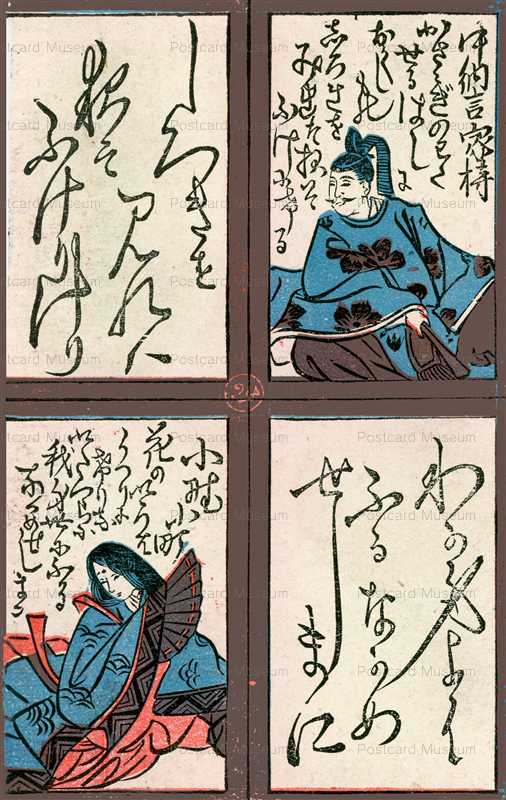 中納言家持
かさゝぎのわた
せるはしに
おくしもの
しろきを
みれば夜そ
ふけにける
しろきを
見れは
夜そ
ふけにける
小野小町
花のいろは
うつりに
けりな
いたづらに
我身世にふる
ながめせしまに
わか身よに
ふるなかめ
せしまに
Postcard Museum